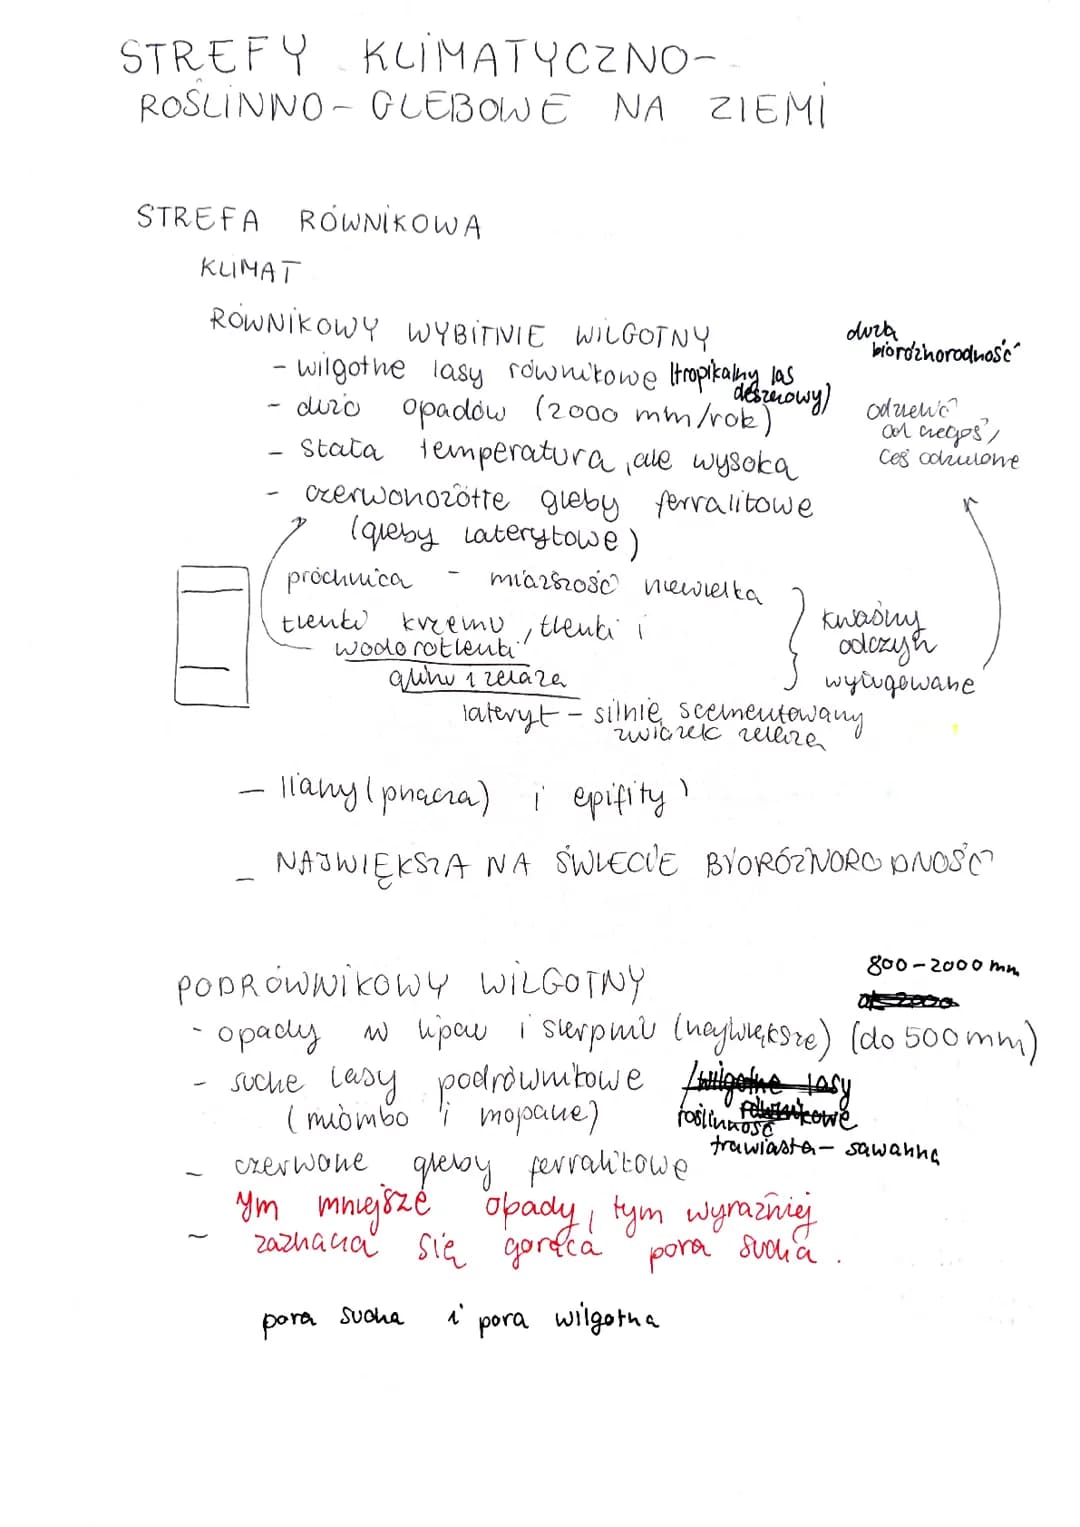 STREFY KLIMATYCZNO-
ROŚLINNO-GLEBOWE NA ZIEMI
STREFA RÓWNIKOWA
KLIMAT
RÓWNIKOWY WYBITNIE WILGOTNY
duża
bioróżnorodność
- wilgotne lasy równikowe (tropikalny las
deszczowy)
- dużo opadów (2000 mm/rok)
- stała temperatura, ale wysoka
od czegoś /
coś
- czerwonożółte gleby ferralitowe
(gleby laterytowe)
próchnica - miąższość niewielka
tlenki krzemu, tlenki i
wodorotlenki
glinu i żelaza
kwaśny
odczyn
wyługowane
lateryt - silnie scementowany
związek żelaza
- liany (pnącza) i epifity
- NAJWIĘKSZA NA ŚWIECIE BYORÓŻNORODNOŚĆ
800-2000 mm
PODRÓWNIKOWY WILGOTNY
- opady w lipcu i sierpniu (największe) (do 500 mm)
- suche lasy podrównikowe
(miombo i mopane)
roślinność
trawiasta - sawanna
- czerwone gleby ferralitowe
Ym mniejsze opady, tym wyraźniej
- zaznacza się gorąca pora sucha.
pora sucha i pora wilgotna